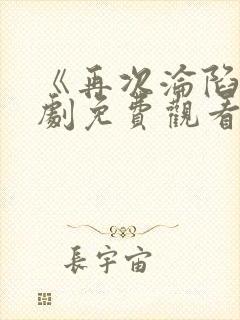 《再次淪陷
劇免費觀看
長宇宙